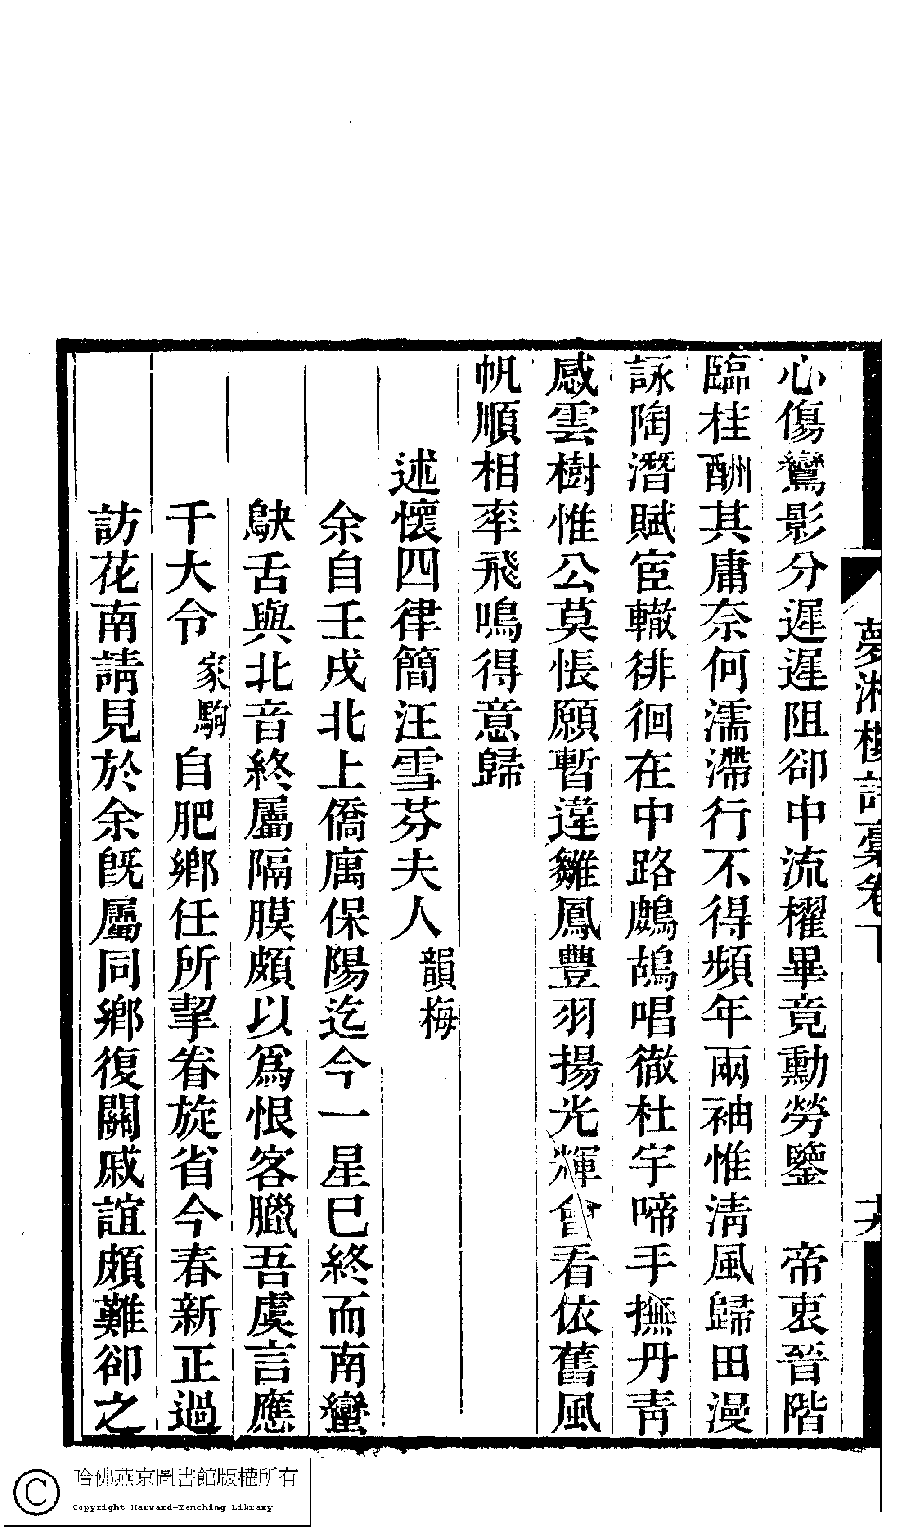 心傷鸞影分遲遲阻卻中流櫂畢竟勳勞鑒　帝衷晉階
臨桂酬其庸奈何濡滯行不得頻年兩袖惟清風歸田漫
詠陶潛賦宦轍徘徊在中路鷓鴣唱徹杜宇啼手撫丹青
感雲樹惟公莫悵願暫違雛鳳豐羽揚光輝會看依舊風
帆順相率飛鳴得意歸
述懷四律簡汪雪芬夫人韻梅
余自壬戌北上僑寓保陽迄今一星巳終而南蠻
鴃舌與北音終屬隔膜頗以爲恨客臘吾虞言應
千大令家駒自肥鄉任所挈眷旋省今春新正過
訪花南請見於余旣屬同鄉復關戚誼頗難卻之
夢湘樓詩稾卷下
十六
哈佛燕京圖書館版權所有
Copyright Harvard-Yenching Library